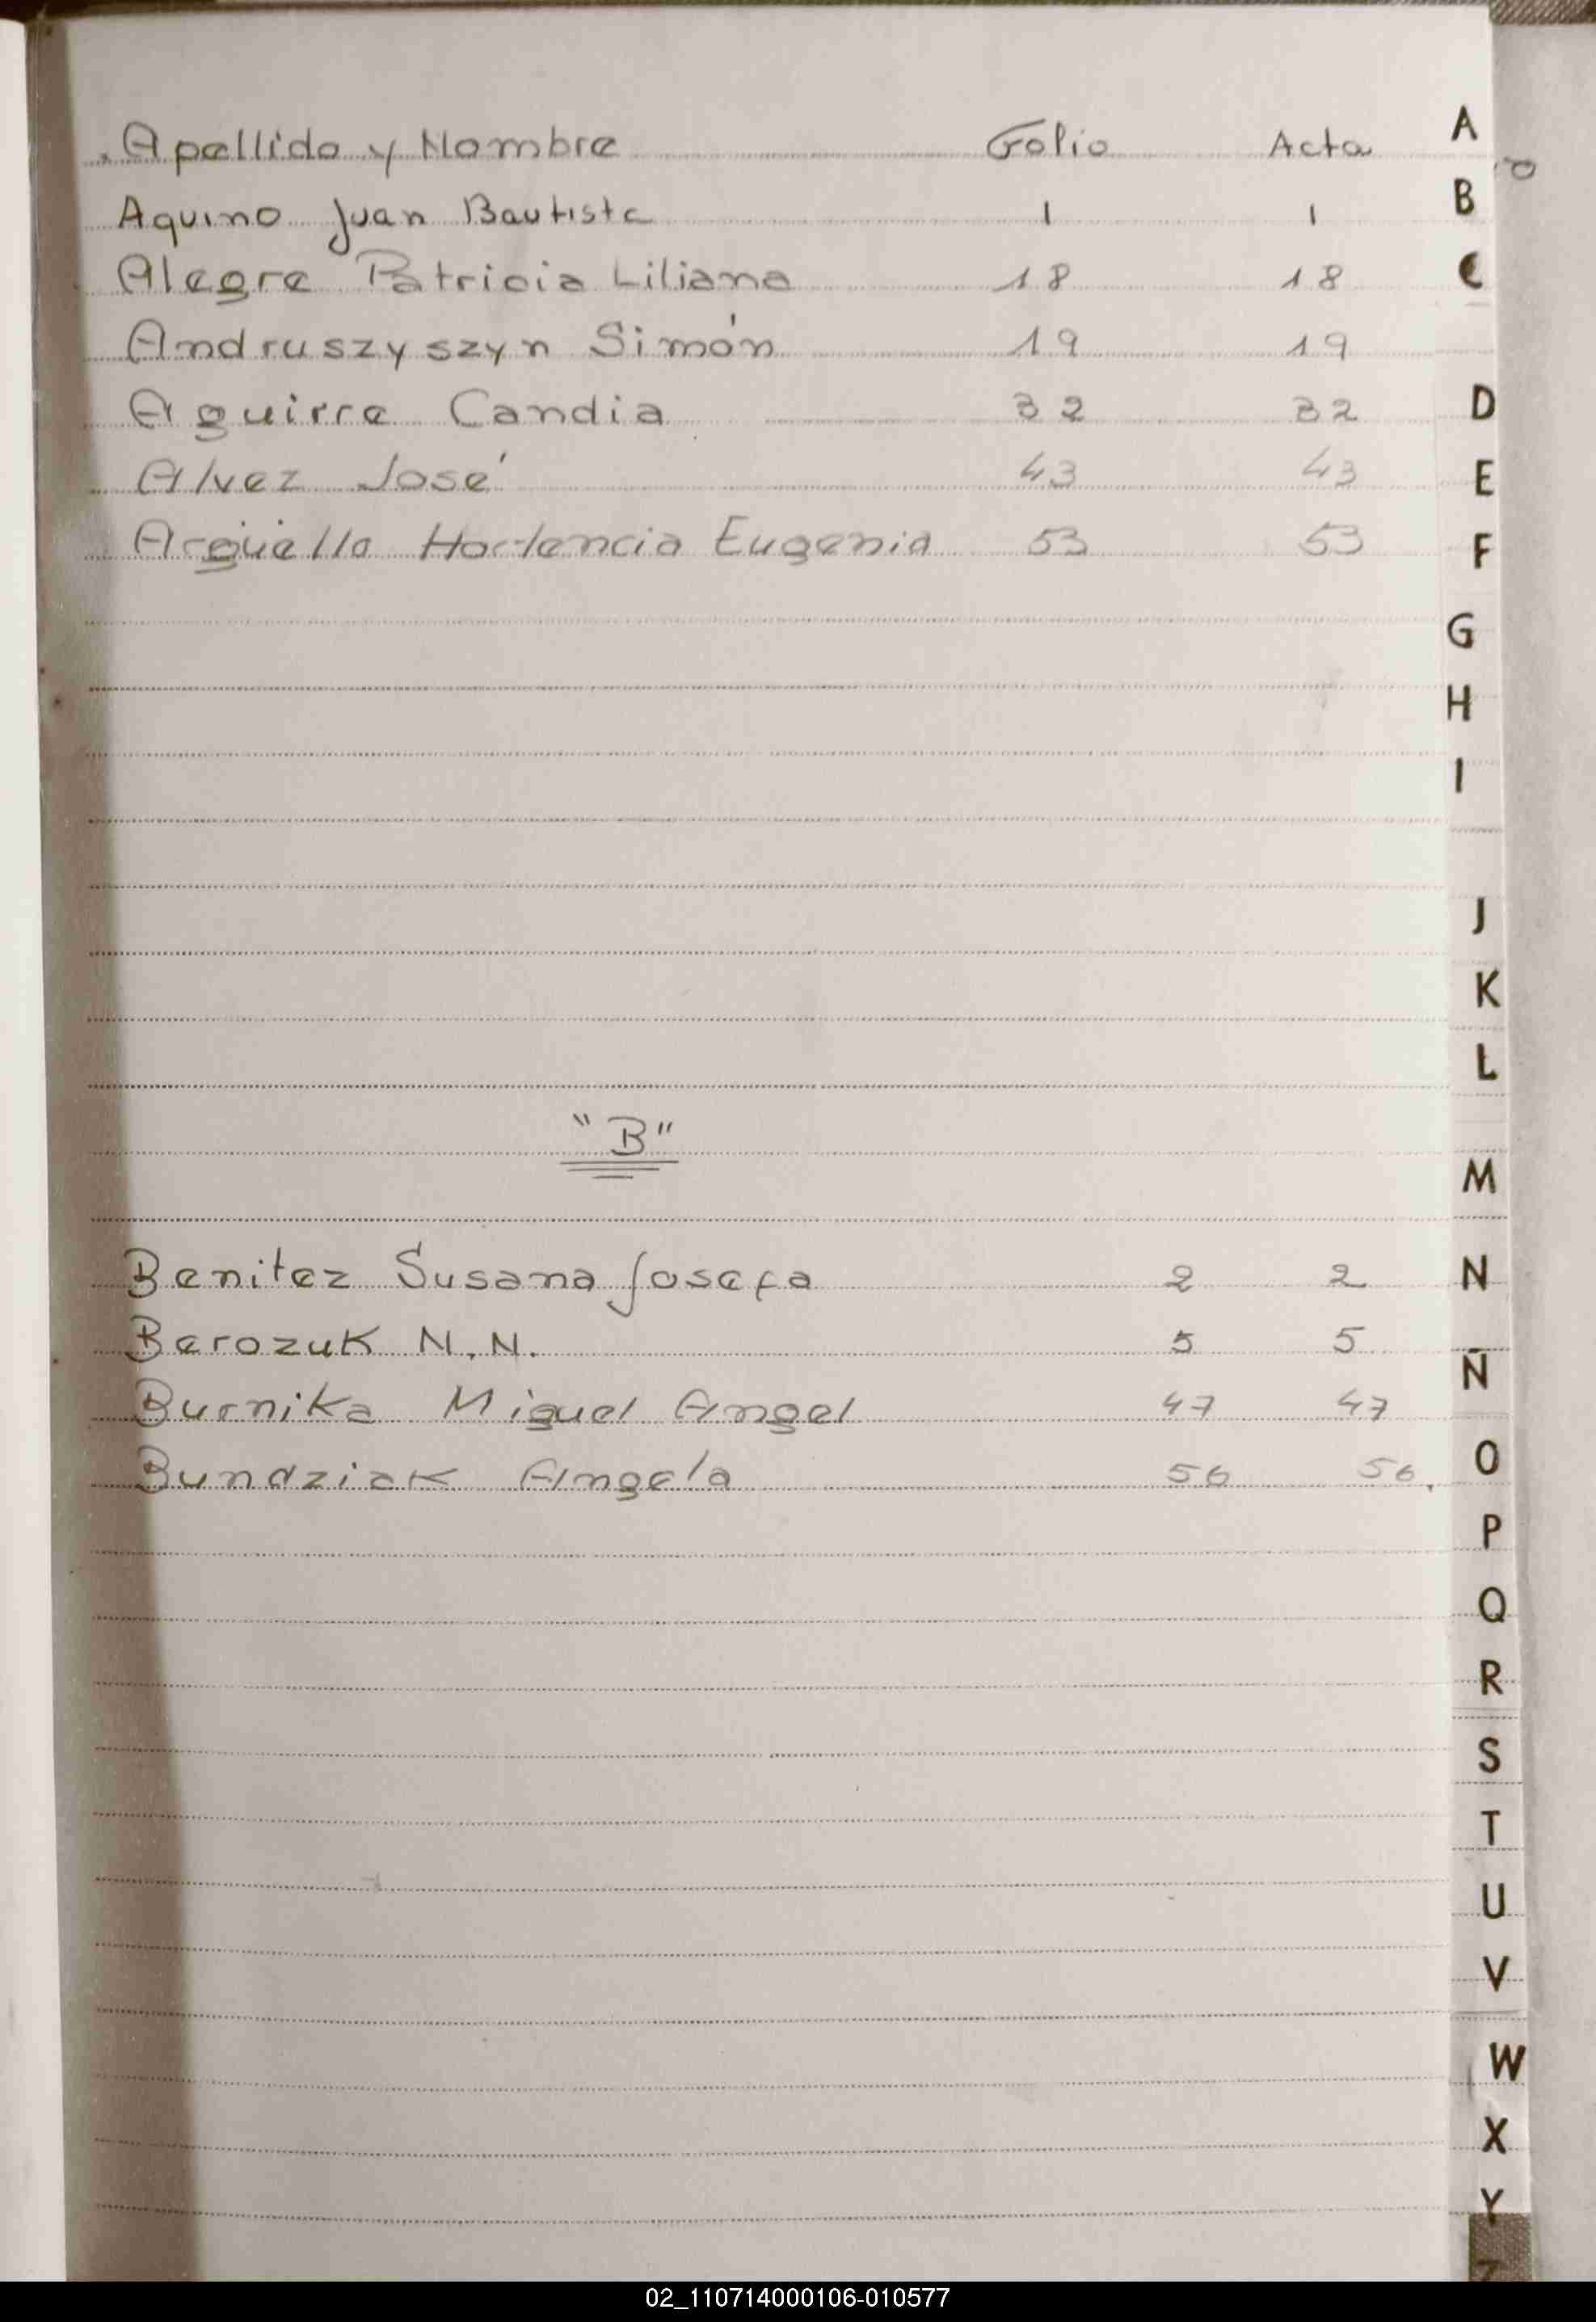 Apellido y Nombre Folio Acta
Aquino Juan Bautista 1 1
Alegre Patricia Liliana 18 18
Andruszyszyn Simón 19 19
Aguirre Candia 32 32
Alvez José 43 43
Argüello Hortencia Eugenia 53 53
"B"
Benitez Susana Josefa 2 2
Berozuk N.N. 5 5
Burnika Miguel Angel 47 47
Bundziak Angela 56 56.
A
B
C
D
E
F
G
H
I
J
K
L
M
N
Ñ
O
P
Q
R
S
T
U
V
W
X
Y
Z
02_110714000106-010577